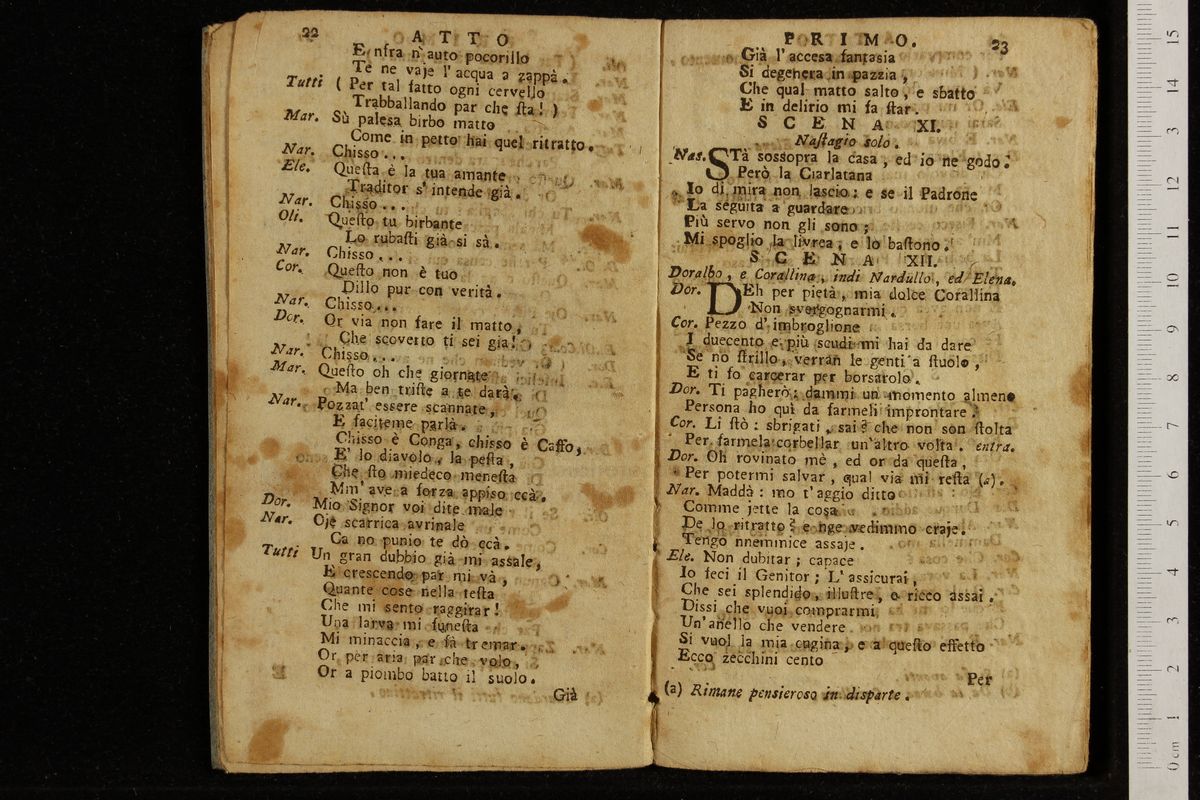 22 ATTO
E nfra n'auto pocorillo
Te ne vaje l'acqua a zappà.
Tutti ( Per tal fatto ogni cervello
Traballando par che ſta! )
Mar. Sù palesa birbo matto
Come in petto hai quel ritratto.
Nar. Chisso...
Ele. Queſta è la tua amante
Traditor s'intende già.
Nar. Chisso...
Oli. Queſto tu birbante
Lo rubaſti già si sà.
Nar. Chisso...
Cor. Queſto non è tuo
Dillo pur con verità.
Nar. Chisso...
Dor. Or via non fare il matto,
Che scoverto ti sei gia!
Nar. Chisso...
Mar. Queſto oh che giornate
Ma ben triſte a te darà.
Nar. Pozzat' essere scannate,
E faciteme parlà.
Chisso è Conga, chisso è Caffo,
E' lo diavolo, la peſta,
Che ſto miedeco meneſta
Mm' ave a forza appiso ccà.
Dor. Mio Signor voi dite male
Nar. Oje scarrica avrinale
Ca no punio te dò ccà.
Tutti Un gran dubbio già mi assale,
E crescendo par mi và,
Quante cose nella teſta
Che mi sento raggirar!
Una larva mi funeſta
Mi minaccia, e fà tremar.
Or per aria par che volo,
Or a piombo batto il suolo.
Già
PRIMO. 23
Già l'accesa fantasia
Si degenera in pazzia,
Che qual matto salto, e sbatto
E in delirio mi fa ſtar.
SCENA XI.
Naſtagio solo.
Nas. STà sossopra la casa, ed io ne godo.
Però la Ciarlatana
Io di mira non lascio: e se il Padrone
La seguita a guardare
Più servo non gli sono;
Mi spoglio la livrea, e lo baſtono.
SCENA XII.
Doralbo, e Corallina, indi Nardullo, ed Elena.
Dor. DEh per pietà, mia dolce Corallina
Non svergognarmi.
Cor. Pezzo d'imbroglione
I duecento e più scudi mi hai da dare
Se no ſtrillo, verran le genti a ſtuolo,
E ti fo carcerar per borsarolo.
Dor. Ti pagherò: dammi un momento almeno
Persona ho quì da farmeli improntare.
Cor. Li ſtò: sbrigati, sai? che non son ſtolta
Per farmela corbellar un'altro volta. entra.
Dor. Oh rovinato mè, ed or da queſta,
Per potermi salvar, qual via mi reſta (a).
Nar. Maddà: mo t'aggio ditto
Comme jette la cosa
De lo ritratto? e nge vedimmo craje.
Tengo nnemmice assaje.
Ele. Non dubitar; capace
Io feci il Genitor; L'assicurai,
Che sei splendido, illuſtre, e ricco assai.
Dissi che vuoi comprarmi
Un'anello che vendere
Si vuol la mia cugina, e a queſto effetto
Ecco zecchini cento
Per
(a) Rimane pensieroso in disparte.